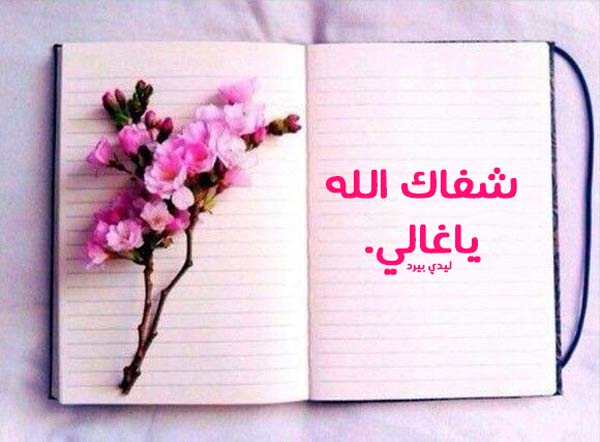 شفاك الله
ياغالي.
ليدي بيرد